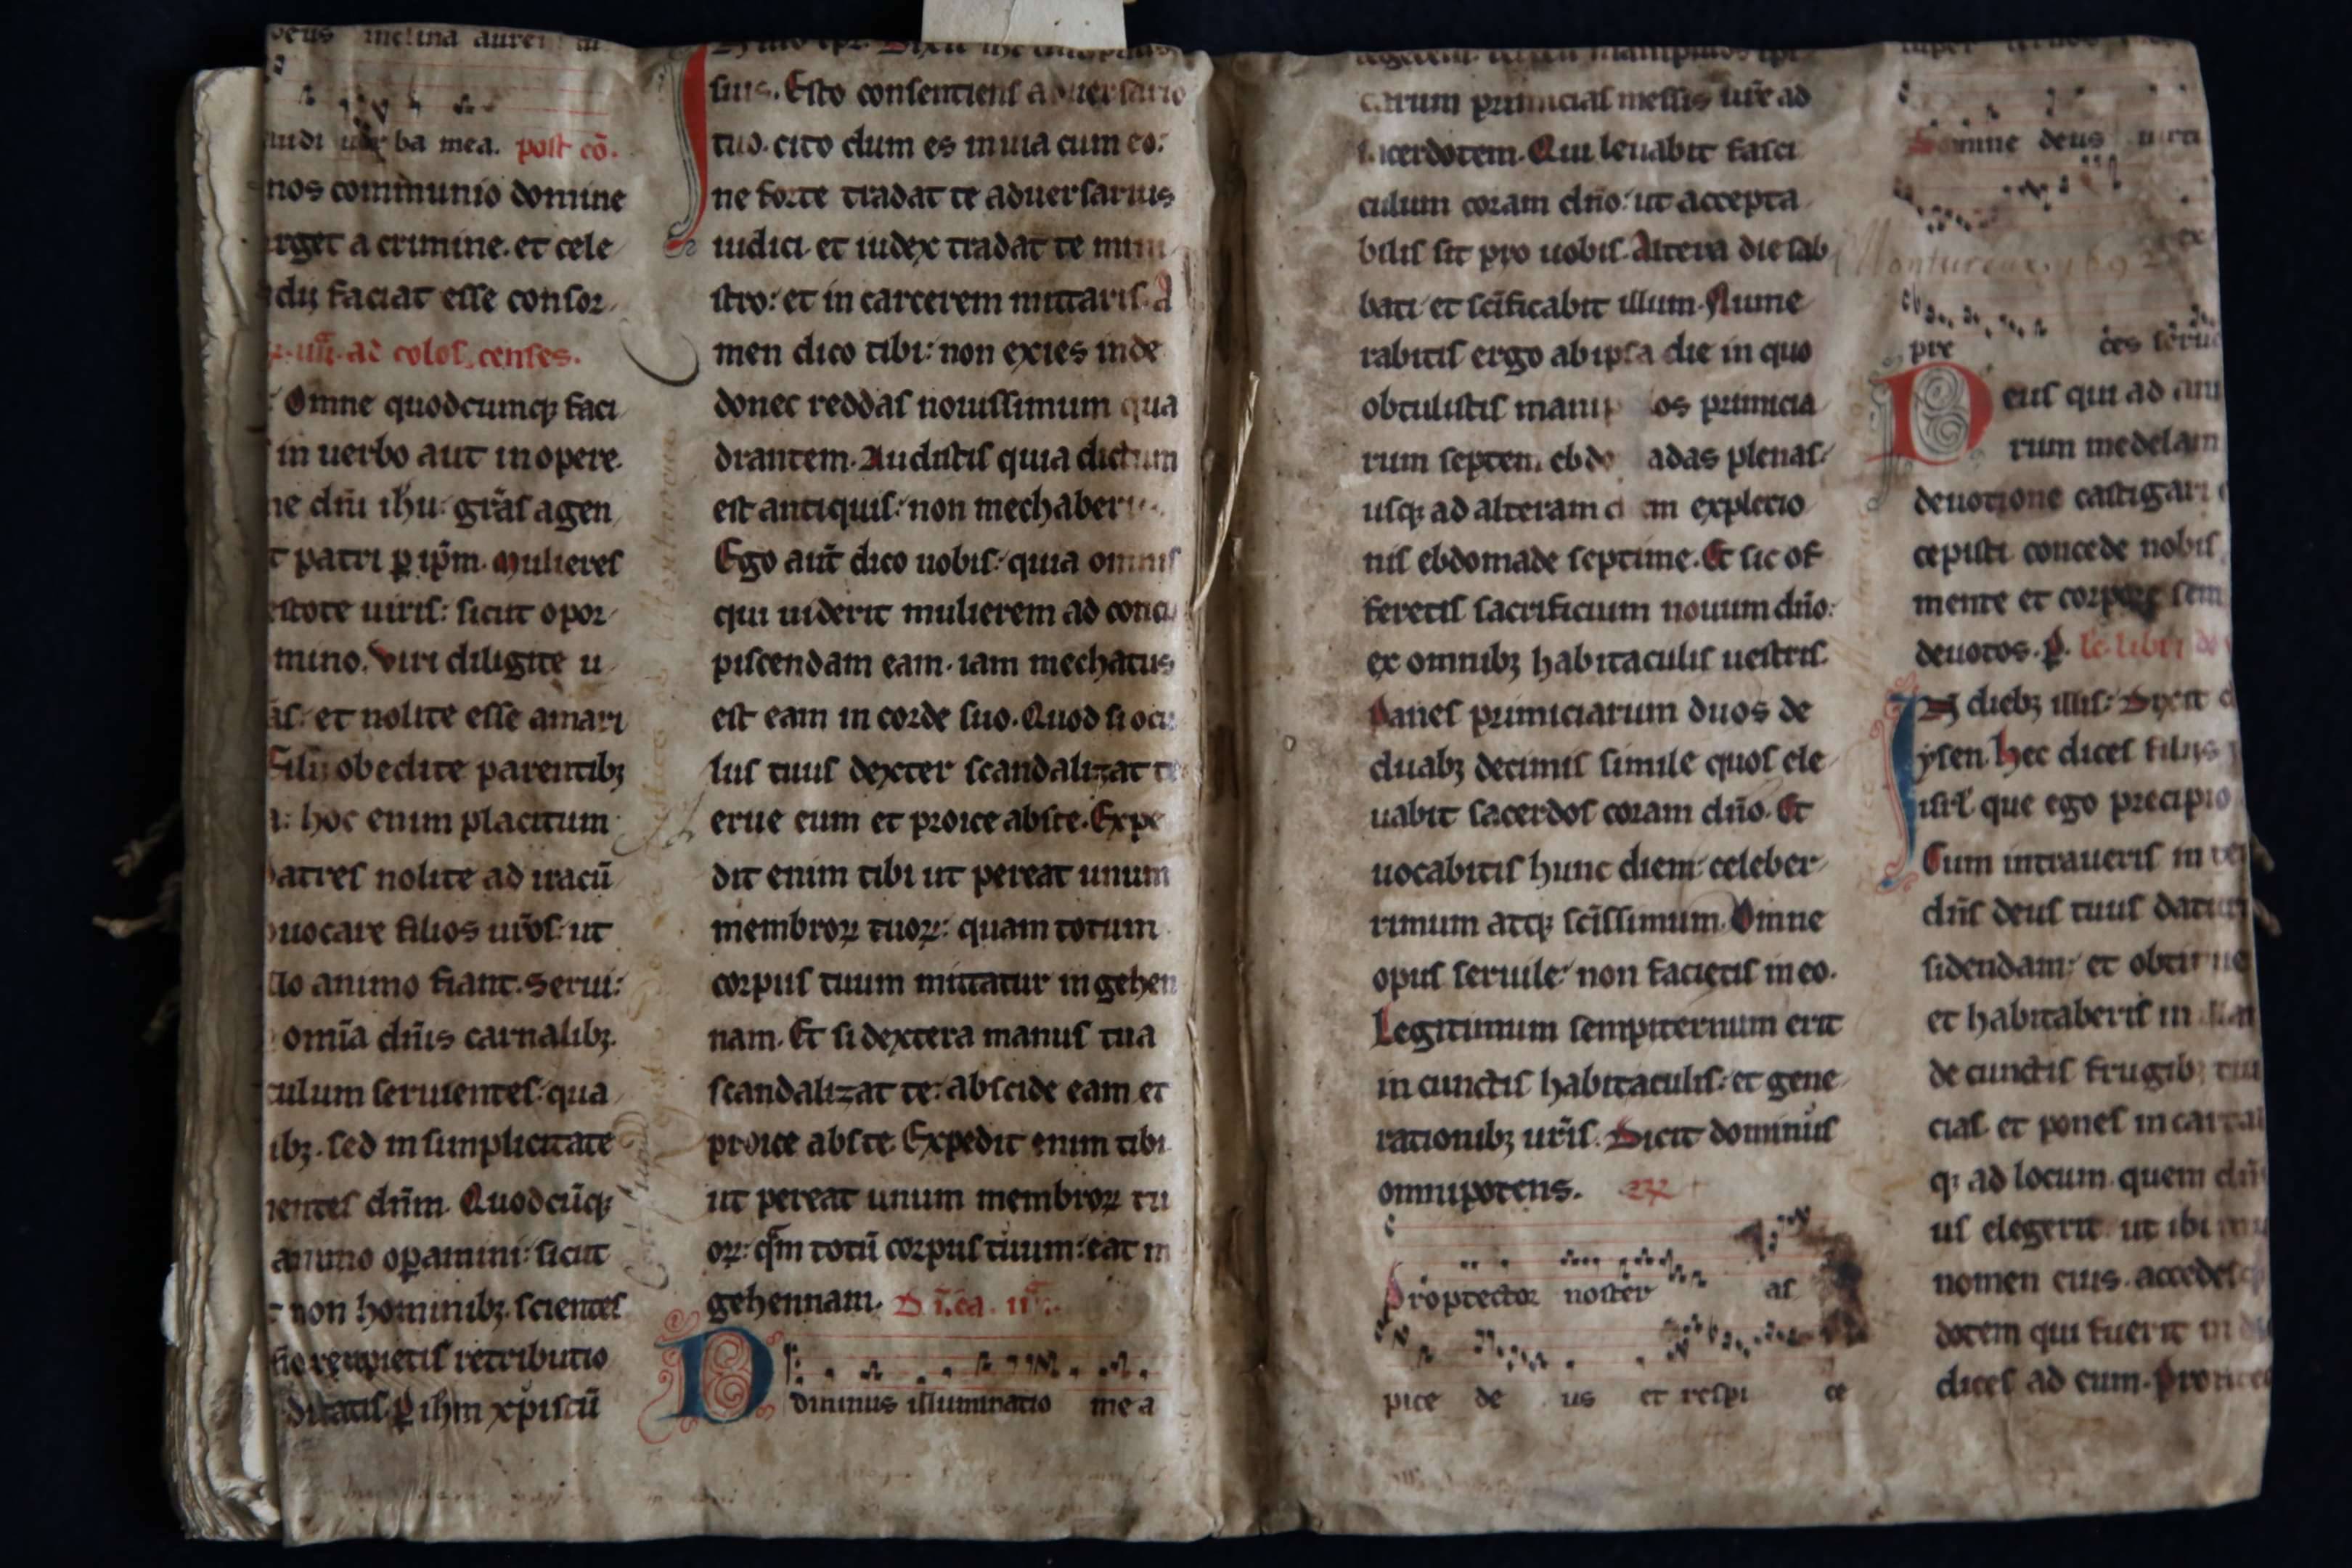 deus inclina aurem
uerba mea. post cō.
nos communio domine
rget a crimine. et cele
faciat esse consor
ad coloscenses.
Omne quodcumqꝫ faci
in uerbo aut in opere.
ne dn̄i ihu gr̄as agen
t patri ꝑ ip̄m. Mulieres
estote uiris: sicut opor
mino. Viri diligite u
as: et nolite esse amari
Filii obedite parentibꝫ
: hoc enim placitum
patres nolite ad iracū
uocare filios ur̄os: ut
llo animo fiant. Serui:
om̄ia dn̄is carnalibꝫ.
culum seruientes: qua
ibꝫ. sed in simplicitate
mentes dn̄m. Quodcūqꝫ
animo oꝑamini: sicut
non hominibꝫ. scientes
recipietis retributio
ditatis. ꝑ ihm xp̄istū
suis. Esto consentiens aduersario
tuo. cito dum es in uia cum eo:
ne forte tradat te aduersarius
iudici. et iudex tradat te mini
stro: et in carcerem mittaris. A
men dico tibi: non exies inde
donec reddas nouissimum qua
drantem. Audistis quia dictum
est antiquis: non mechaber
Ego aut̄ dico uobis: quia omnis
qui uiderit mulierem ad concu
piscendam eam. iam mechatus
est eam in corde suo. Quod si ocu
lus tuus dexter scandalizat te
erue eum et proice abste. Expe
dit enim tibi ut pereat unum
membroꝝ tuoꝝ: quam totum
corpus tuum mittatur in gehen
nam. Et si dextera manus tua
scandalizat te: abscide eam et
proice abste. Expedit enim tibi
ut pereat unum membroꝝ tu
oꝝ: qm̄ totū corpus tuum: eat in
gehennam. Dn̄ica. ii
Dominus illuminatio mea
carum primicias messis ur̄e ad
sacerdotem. Qui leuabit fasci
culum coram dn̄o: ut accepta
bilis sit pro uobis. Altera die sab
bati et sc̄ificabit illum. Nume
rabitis ergo ab ipsa die in quo
obtulistis mani os primicia
rum septem ebdo adas plenas:
usqꝫ ad alteram em expletio
nis ebdomade septime. Et sic of
feretis sacrificium nouum dn̄o:
ex omnibꝫ habitaculis uestris.
Panes primiciarum duos de
duabꝫ decimis simile quos ele
uabit sacerdos coram dn̄o. Et
uocabitis hunc diem: celeber
rimum atqꝫ sc̄issimum. Omne
opus seruile: non facietis in eo.
Legitimum sempiternum erit
in cunctis habitaculis: et gene
rationibꝫ ur̄is. Dicit dominus
omnipotens.
Proptector noster as
pice de us et respi ce
omne deus uirtu
Montureux 169
pre ces seruo
Deus qui ad ani
rum medelam
deuotione castigari
cepisti concede nobis
mente et corpore sem
deuotos. ꝑ. lc̄ libri
In diebꝫ illis: Dixit
ysen. Hec dices filiis
isrl̄ que ego precipio
Cum intraueris in
dn̄s deus tuus daturus
sidendam: et obtinue
et habitaberis in
de cunctis frugibꝫ tui
cias. et pones in cartal
qꝫ ad locum quem dn̄s
us elegerit ut ibi
nomen eius. accedes
dotem qui fuerit in
dices ad eum.